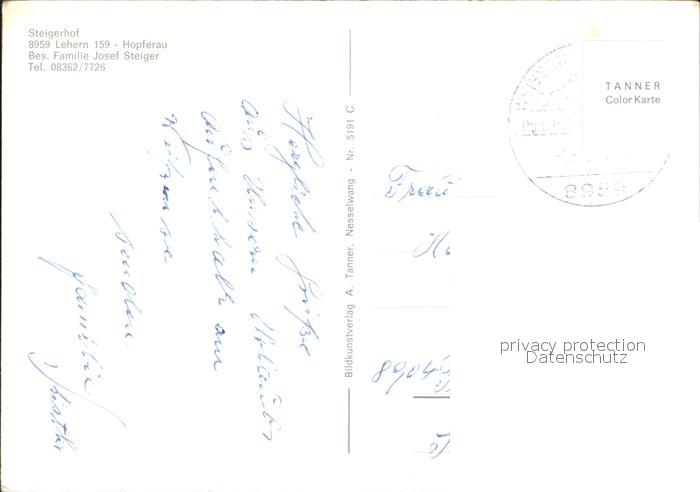 Steigerhof
8959 Lehern 159 - Hopferau
Bes. Familie Josef Steiger
Tel. 08362/7726
Herzliche Grüße
aus unserm Urlaubs
aufenthalt am
senden
Familie
Bildkunstverlag A. Tanner, Nesselwang - Nr. 5191 C
TANNER
Color Karte
8959
Frau
privacy protection
Datenschutz